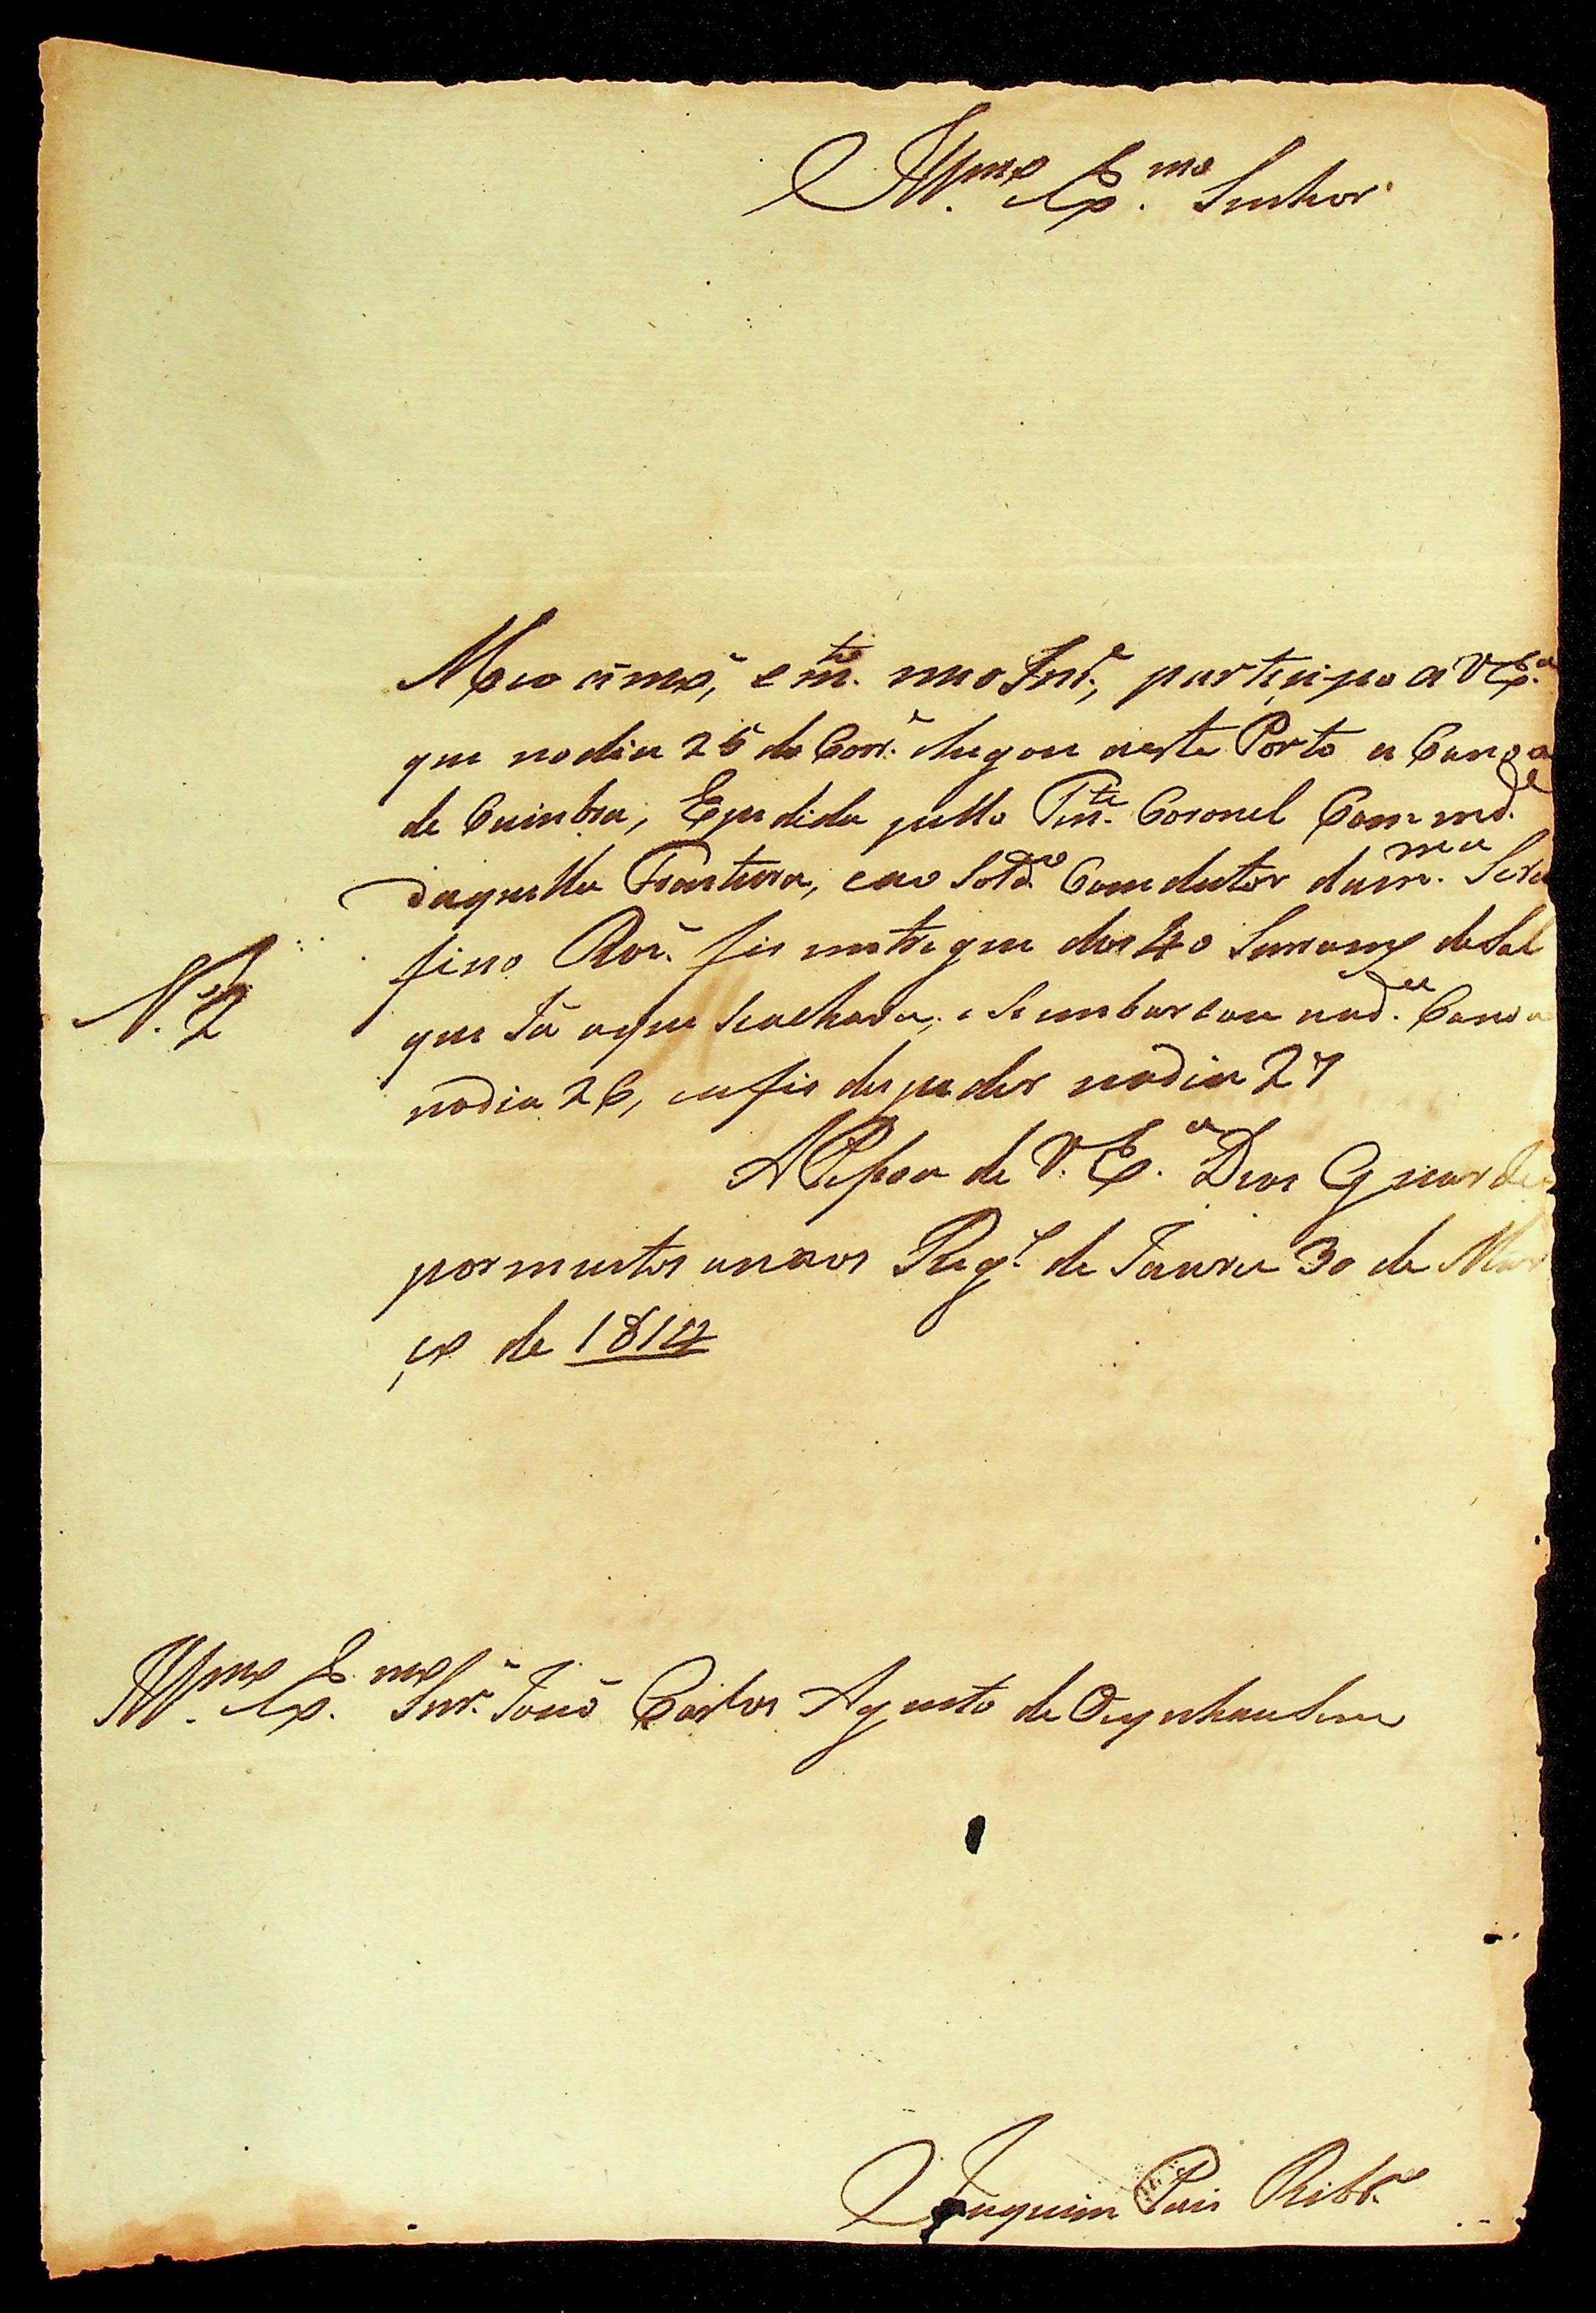 Ill.mo Ex.mo Senhor
Meo amo, e m.to meo Snr.e, partiçipo a V Ex.a
que no dia 25 do Corr.e chegou neste Porto a Canoa
de Coimbra, Expedida pello Ten.te Coronel Command.e
daquella Fronteira, e ao Sold.o Comdutor da m.ma Sera
fino Roiz. fis emtregua dos 40 Surroens de Sal
N.2
que Já aqui Seachava, e Sembarcou na d.a Canoa
no dia 26, e a fis despeder no dia 27
A Pessoa de V. Ex.a Deos Guarde
por muitos annos Reg.o de Jauru 30 de Mar
ço de 1812
Ill.mo Ex.mo Snr. João Carlos Agusto de Oeynhausen
Joaquim Pais Ribr.o